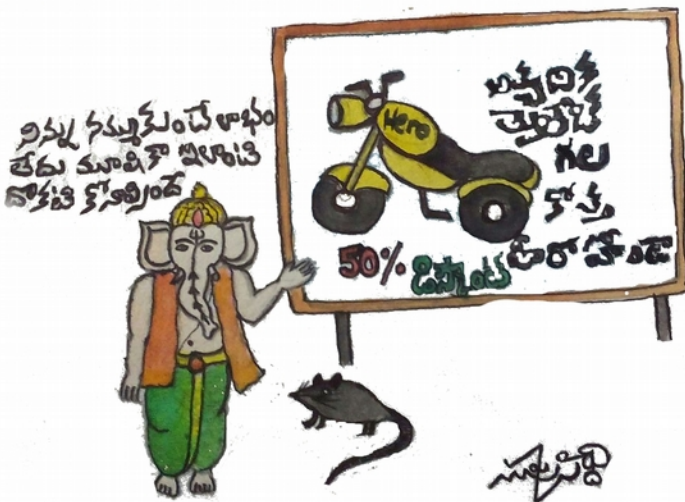 నిన్ను నమ్ముకుంటే లాభం
లేదు మూషికా ఇలాంటి
దొకటి కోనాల్సిందే
Hero
అత్యధిక
మైలేజి
గల
కొత్త
హీరో హోండా
50% డిస్కౌంట్